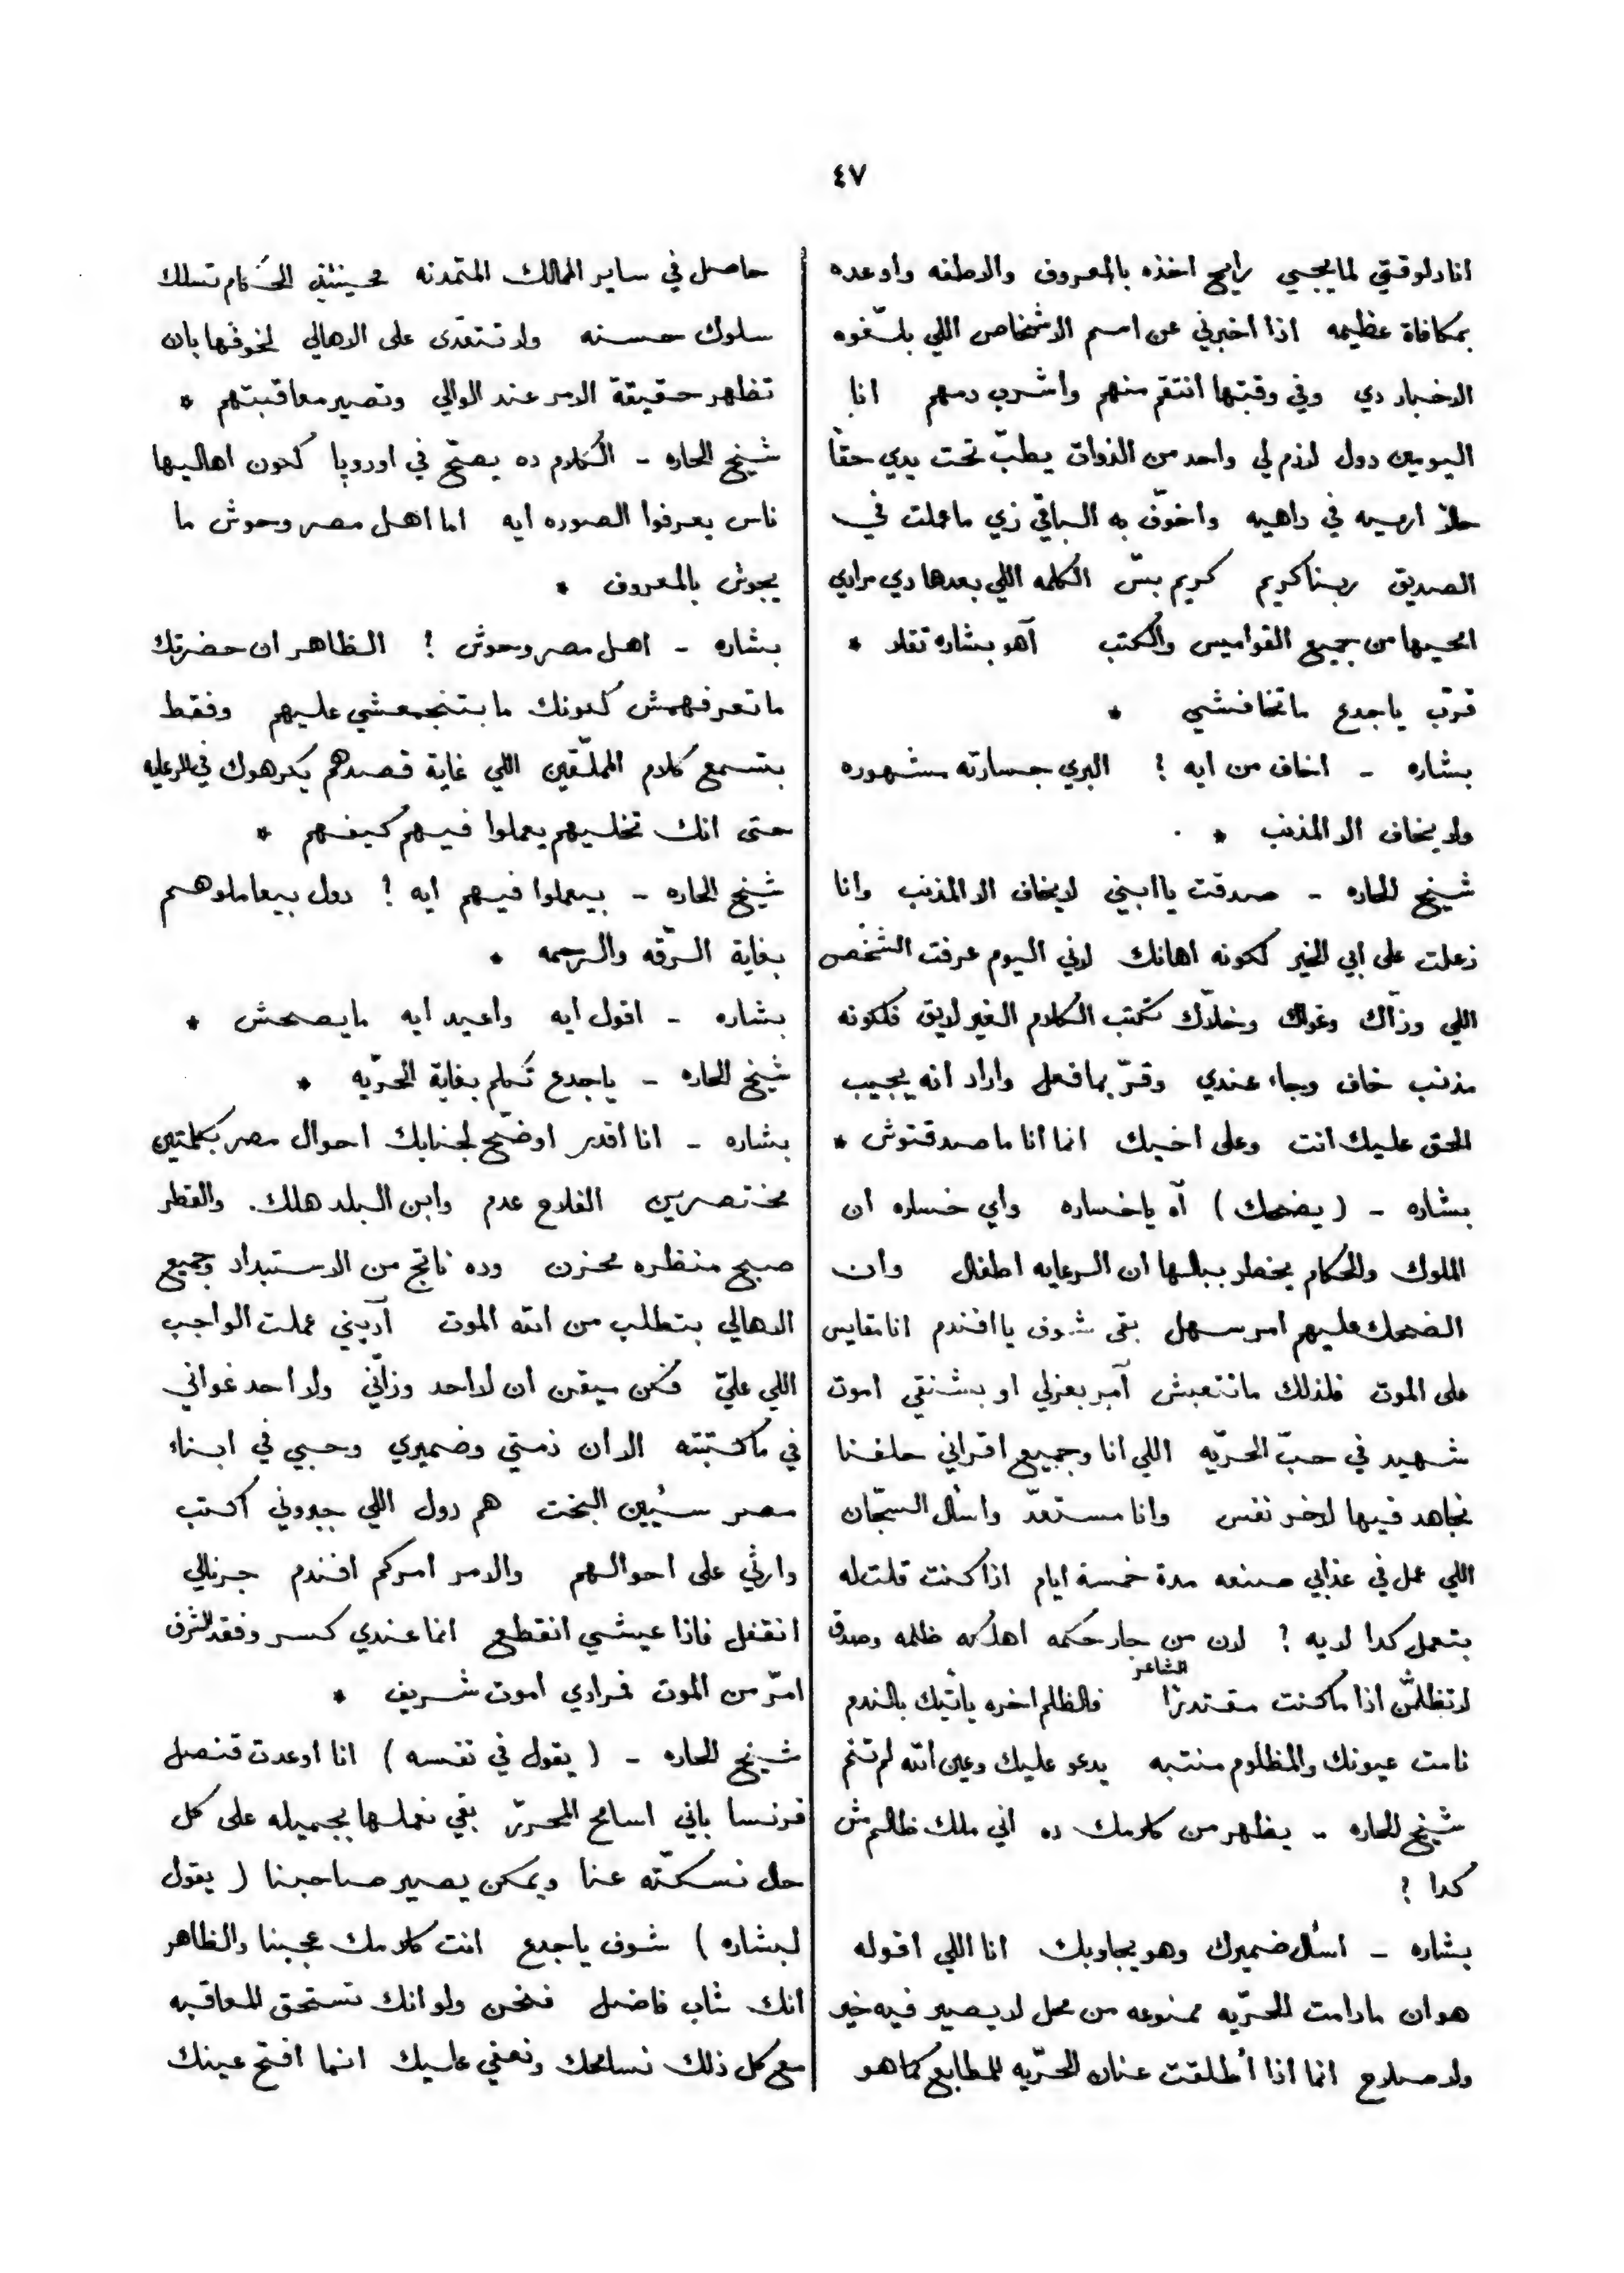 ٤٧
انا دلوقتي لما يجي رايح اخذه بالمعروف والاطفه واوعده
بمكافاة عظيمه اذا اخبرني عن اسم الاشخاص اللي بلّغوه
الاخبار دي وفي وقبتها انتقم منهم واشرب دمهم انا
اليومين دول لازم لي واحد من الذوات يطبّ تحت يدي حقاً
حلاّ ارميه في داهيه واخوّف به الباقي زي ما عملت في
الصديق ربنا كريم كريم بسّ الكلمه اللي بعدها دي مرادي
امحيها من جميع القواميس والكتب آهو بشاره تقلد *
قرّب ياجدع ماتخافشي *
بشاره - اخاف من ايه ؟ البري جسارته مشهوره
ولا يخاف الا المذنب *
شيخ الحاره - صدقت يا ابني لا يخاف الا المذنب وانا
زعلت على ابي الخير لكونه اهانك لاني اليوم عرفت الشخص
اللي وزّاك وغواك وخلاّك تكتب الكلام الغير لايق فلكونه
مذنب خاف وجاء عندي وقرّ بما فعل واراد انه يجيب
الحق عليك انت وعلى اخيك انما انا ما صدقتوش *
بشاره - (يضحك) آه ياخساره واي خساره ان
الملوك والحكام يخطر ببالها ان الرعايه اطفال وان
الضحك عليهم امر سهل بقى شوف يا افندم انا مقايس
على الموت فلذلك ماتتعبش آمر بعزلي او بشنقي اموت
شهيد في حبّ الحرّيه اللي انا وجميع اقراني حلفنا
نجاهد فيها لاخر نفس وانا مستعدّ واسأل السجّان
اللي عمل في عذابي صنعه مدة خمسة ايام اذا كنت قلت له
بتعمل كدا ليه ؟ لان من جار حكمه اهلكه ظلمه وصدق
الشاعر
لا تظلمنّ اذا ما كنت مقتدرًا فالظلم اخره يأتيك بالندم
نامت عيونك والمظلوم منتبه يدعو عليك وعين الله لم تنم
شيخ الحاره - يظهر من كلامك ده اني ملك ظالم مش
كدا ؟
بشاره - اسأل ضميرك وهو يجاوبك انا اللي اقوله
هو ان مادامت الحرّيه ممنوعه من محل لا يصير فيه خير
ولا صلاح انما اذا أطلقت عنان الحرّيه للمطابع كما هو
حاصل في ساير الممالك المتمدنه فحينئذٍ الحُكام تسلك
سلوك حسنه ولا تتعدّى على الاهالي لخوفها بان
تظهر حقيقة الامر عند الوالي وتصير معاقبتهم *
شيخ الحاره - الكلام ده يصحّ في اوروپا كون اهاليها
ناس يعرفوا الصوره ايه اما اهل مصر وحوش ما
يجوش بالمعروف *
بشاره - اهل مصر وحوش ؟ الظاهر ان حضرتك
ماتعرفهمش كونك ما بتنجمعشي عليهم وفقط
بتسمع كلام الملّقين اللي غاية قصدهم يكرهوك في الرعايه
حتى انك تخليهم يعملوا فيهم كيفهم *
شيخ الحاره - بيعملوا فيهم ايه ؟ دول بيعاملوهم
بغاية الرّقه والرحمه *
بشاره - اقول ايه واعيد ايه مايصحش *
شيخ الحاره - ياجدع تكلم بغاية الحرّيه *
بشاره - انا اقدر اوضّح لجنابك احوال مصر بكلمتين
مختصرين الفلاح عدم وابن البلد هلك. والقطر
صبح منظره محزن وده ناتج من الاستبداد وجميع
الاهالي بتطلب من الله الموت آديني عملت الواجب
اللي عليّ فكن ميقن ان لا احد وزّاني ولا احد غواني
في ما كتبته الا ان ذمتي وضميري وحبي في ابناء
مصر سئيين البخت هم دول اللي جبروني اكتب
وارثي على احوالهم والامر امركم افندم جرنالي
انقفل فاذا عيشي انقطع انما عندي كسر وفقد الشرف
امرّ من الموت فمرادي اموت شريف *
شيخ الحاره - (يقول في نفسه) انا اوعدت قنصل
فرنسا باني اسامح المحررّ بقي نعملها بجميله على كل
حال نسكّته عنا ويمكن يصير صاحبنا (يقول
لبشاره) شوف ياجدع انت كلامك عجبنا والظاهر
انك شاب فاضل فنحن ولو انك تستحق المعاقبه
مع كل ذلك نسامحك ونعفي عليك انما افتح عينك